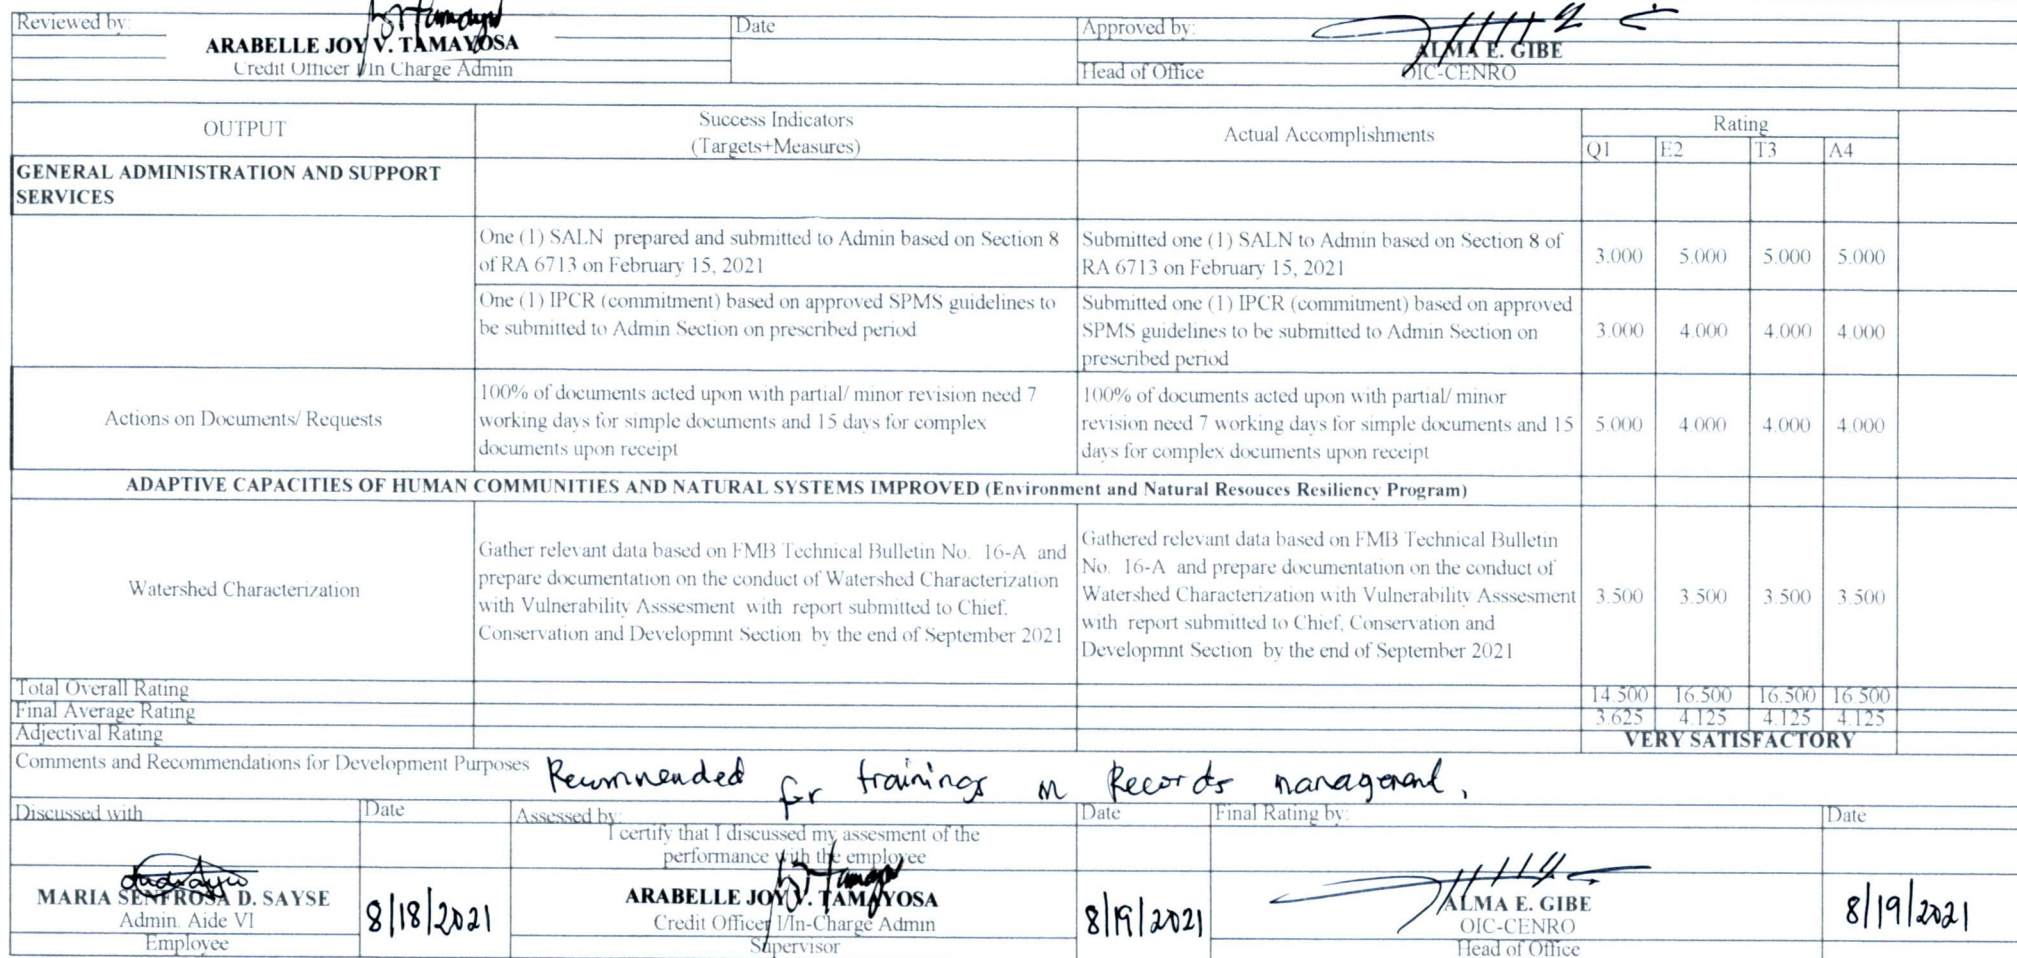 Reviewed by:
ARABELLE JOY V. TAMAYOSA
Credit Officer I/In Charge Admin
Date
Approved by:
ALMA E. GIBE
Head of Office
OIC-CENRO
OUTPUT
Success Indicators
(Targets+Measures)
Actual Accomplishments
Rating
Q1 E2 T3 A4
GENERAL ADMINISTRATION AND SUPPORT
SERVICES
One (1) SALN prepared and submitted to Admin based on Section 8
of RA 6713 on February 15, 2021
Submitted one (1) SALN to Admin based on Section 8 of
RA 6713 on February 15, 2021
3.000 5.000 5.000 5.000
One (1) IPCR (commitment) based on approved SPMS guidelines to
be submitted to Admin Section on prescribed period
Submitted one (1) IPCR (commitment) based on approved
SPMS guidelines to be submitted to Admin Section on
prescribed period
3.000 4.000 4.000 4.000
Actions on Documents/ Requests
100% of documents acted upon with partial/ minor revision need 7
working days for simple documents and 15 days for complex
documents upon receipt
100% of documents acted upon with partial/ minor
revision need 7 working days for simple documents and 15
days for complex documents upon receipt
5.000 4.000 4.000 4.000
ADAPTIVE CAPACITIES OF HUMAN COMMUNITIES AND NATURAL SYSTEMS IMPROVED (Environment and Natural Resouces Resiliency Program)
Watershed Characterization
Gather relevant data based on FMB Technical Bulletin No. 16-A and
prepare documentation on the conduct of Watershed Characterization
with Vulnerability Asssesment with report submitted to Chief,
Conservation and Developmnt Section by the end of September 2021
Gathered relevant data based on FMB Technical Bulletin
No. 16-A and prepare documentation on the conduct of
Watershed Characterization with Vulnerability Asssesment
with report submitted to Chief, Conservation and
Developmnt Section by the end of September 2021
3.500 3.500 3.500 3.500
Total Overall Rating
14.500 16.500 16.500 16.500
Final Average Rating
3.625 4.125 4.125 4.125
Adjectival Rating
VERY SATISFACTORY
Comments and Recommendations for Development Purposes
Recommended for trainings in Records management.
Discussed with
Date
Assessed by:
Date
Final Rating by:
Date
I certify that I discussed my assesment of the
performance with the employee
MARIA SENFROSA D. SAYSE
Admin. Aide VI
Employee
8/18/2021
ARABELLE JOY V. TAMAYOSA
Credit Officer I/In-Charge Admin
Supervisor
8/19/2021
ALMA E. GIBE
OIC-CENRO
Head of Office
8/19/2021